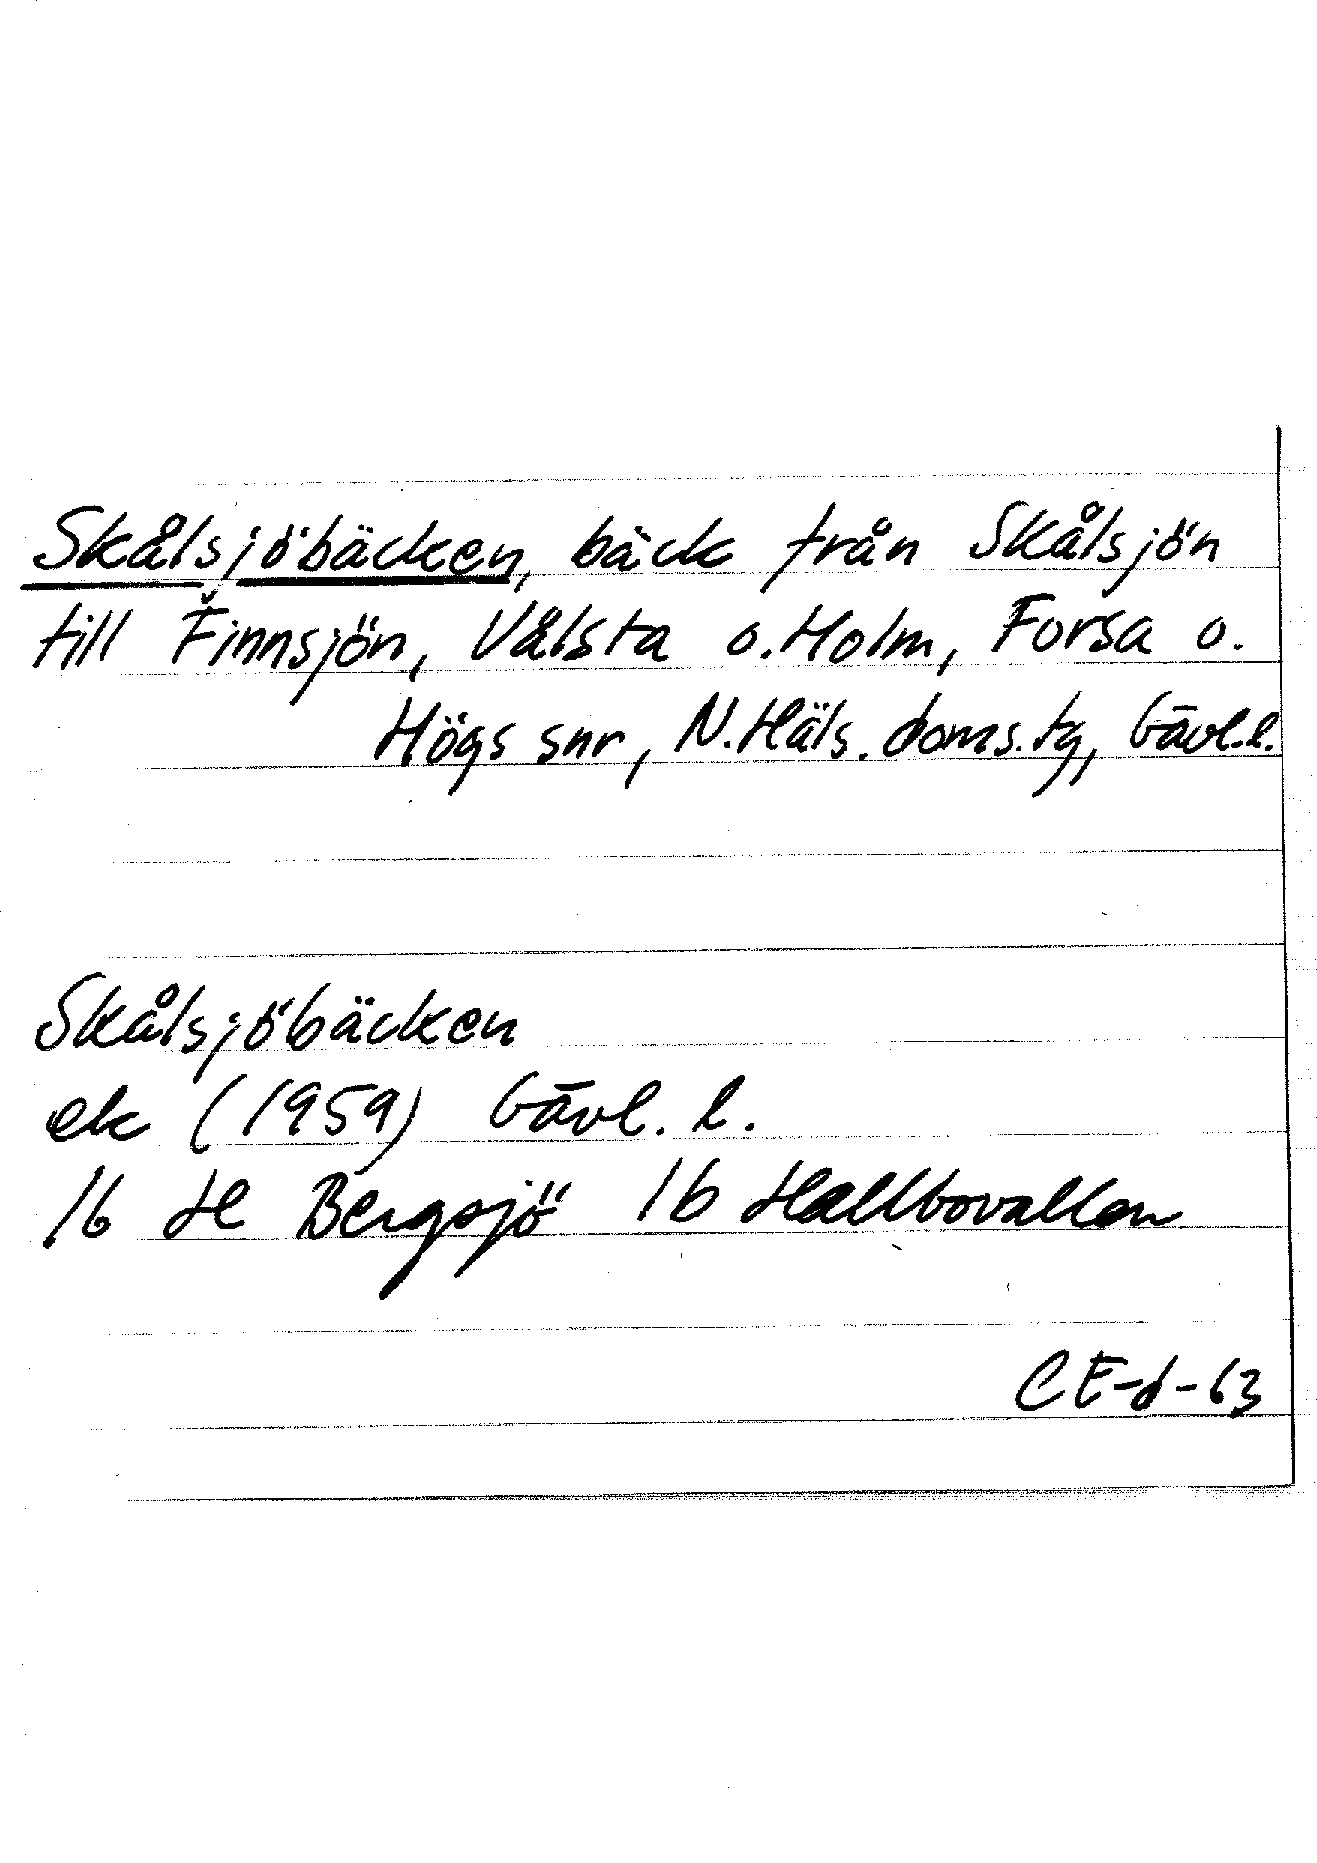 Skålsjöbäcken, bäck från Skålsjön
till Finnsjön, Vålsta o. Holm, Forsa o.
Högs snr, N. Häls. doms. tg, Gävl. l.
Skålsjöbäcken
ek (1959) Gävl. l.
16 H Bergsjö 1b Hallbovallen
CE-d-63